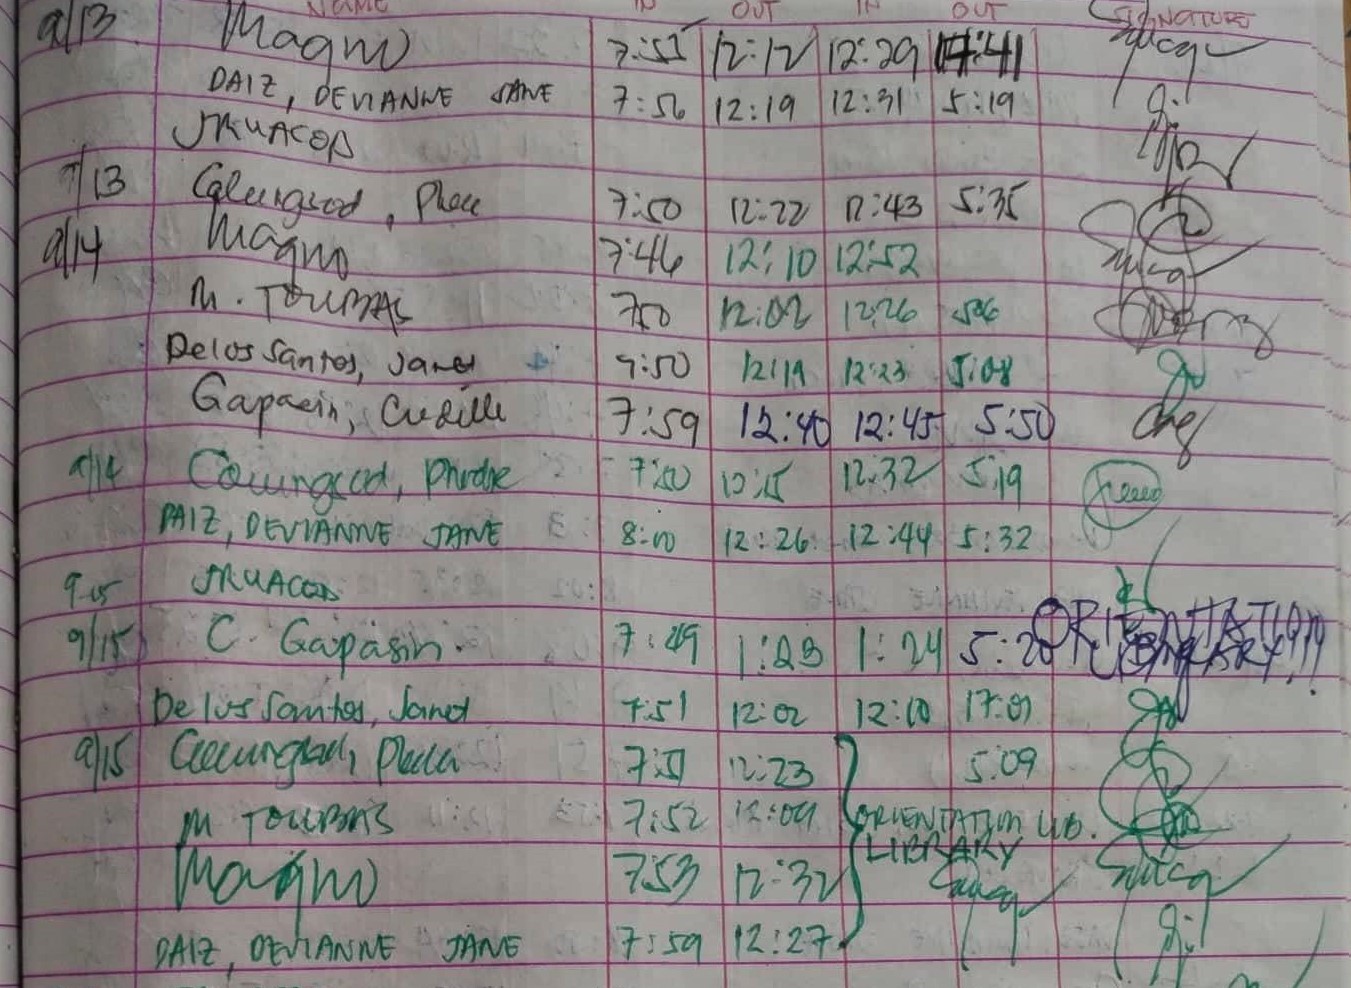 NAME IN OUT IN OUT SIGNATURE
9/13 Magno 7:55 12:12 12:29 17:41
DAIZ, DEVIANNE JANE 7:56 12:19 12:31 5:19
JRUACOD
9/13 7:50 12:22 12:43 5:35
9/14 Magno 7:46 12:10 12:52
M. TOLIBAS 750 12:02 12:26 506
Delos Santos, Janet 7:50 12:19 12:23 5:08
Gapasin, 7:59 12:40 12:45 5:50
9/14 7:50 12:15 12:32 5:19
DAIZ, DEVIANNE JANE 8:00 12:26 12:44 5:32
9-15 JRUACOD
9/15 C. Gapasin. 7:49 1:23 1:24 5:20 ORIENTATION
LIBRARY!!!
Delos Santos, Janet 7:51 12:02 12:10 17:01
9/15 7:51 12:23 5:09
M TOLIBAS 7:52 12:09 ORIENTATION LIB.
LIBRARY
Magno 753 12:32
DAIZ, DEVIANNE JANE 7:59 12:27